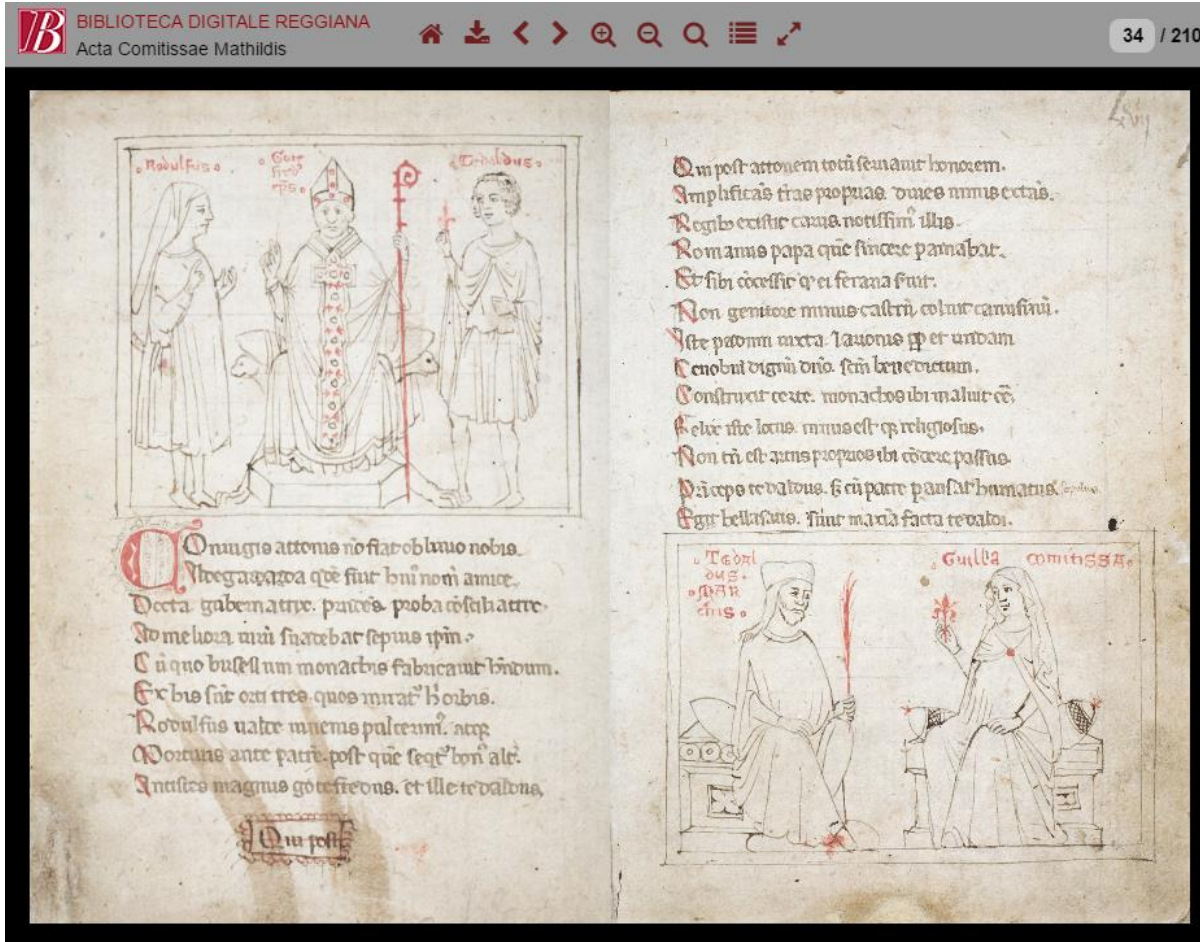 BIBLIOTECA DIGITALE REGGIANA
Acta Comitissae Mathildis
34 / 210
Rodulfus
Got
fred
eps
Tedaldus
Coniugis attonis nō fiat obliuio nobis.
Ildegarda qdē fuit amice.
Docta gubernatrix. proba cōsiliatrix.
Ad meliora uirū suadebat sepius ipm.
Cū quo monachis fabricauit
Ex his sūt orti tres quos mirat orbis.
Rodulfus ualde iuuenis
Mortuus ante patrē. post quē alt.
Antistes magnus gotefredus. et ille tedaldus,
Qui post
Qui post attonem totū seruauit honorem.
Amplificās tras proprias. diues nimis extās.
Regib extitit carus. notissim illis.
Romanus papa quē sincere amabat.
Et sibi cōcessit q ei feraria
Non genitore minus castrū coluit canusinū.
Iste padum iuxta. et undam
Cenobiū dignū dnō. scm benedictum.
Construxit certe. monachos ibi maluit eē.
Felix iste locus. nimis est q religiosus.
Non tn est artus proprios ibi passus
Princeps tedaldus. cū patre pausat humatus.
Egit bella satis. sunt maxīa facta tedaldi.
Tedal
dus.
Mar
chis
Guillia comitissa